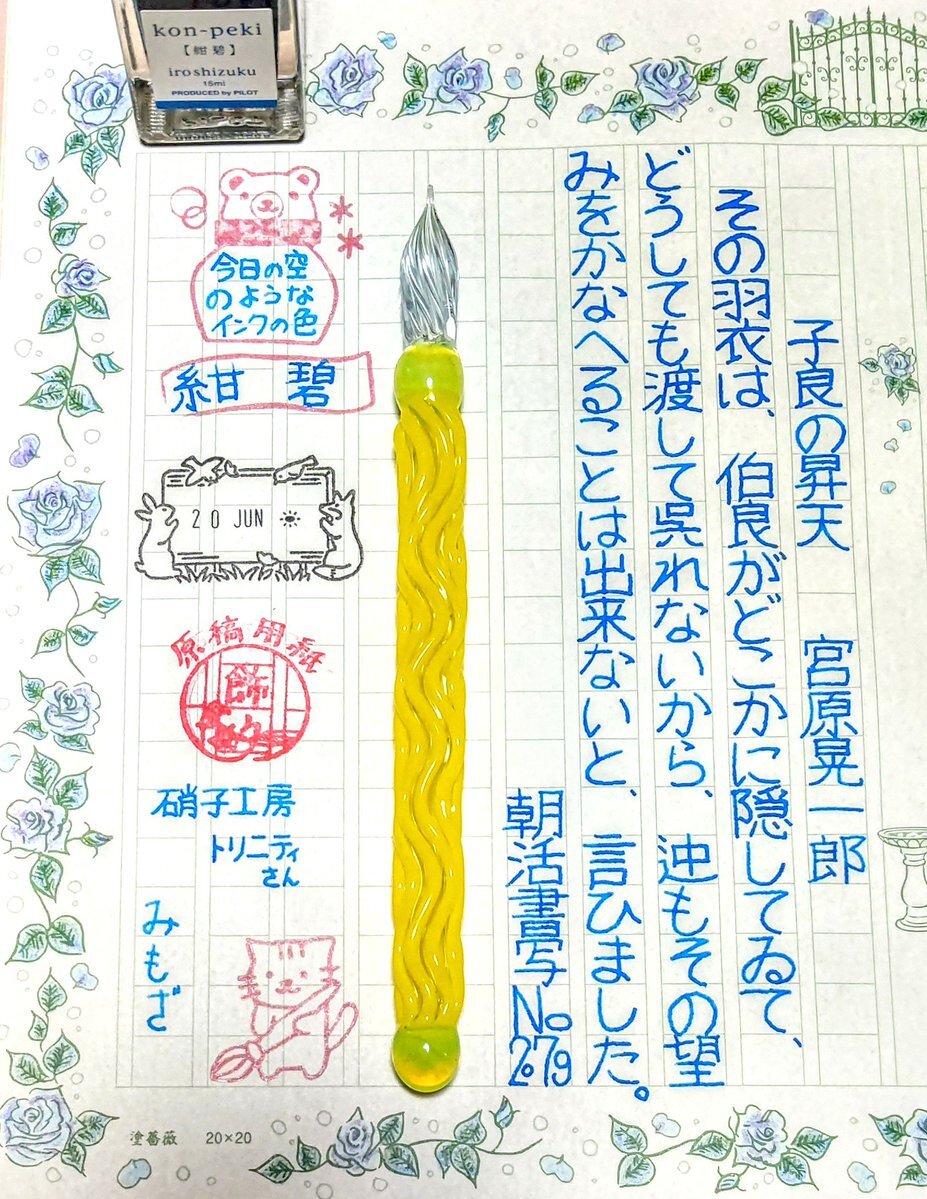 kon-peki
【紺碧】
iroshizuku
15ml
PRODUCED by PILOT
子良の昇天　宮原晃一郎
その羽衣は、伯良がどこかに隠してゐて、
どうしても渡して呉れないから、迚もその望
みをかなへることは出来ないと、言ひました。
朝活書写No2079
今日の空
のような
インクの色
紺碧
20 JUN
原稿用紙
飾
硝子工房
トリニティ
さん
みもざ
塗薔薇　20×20